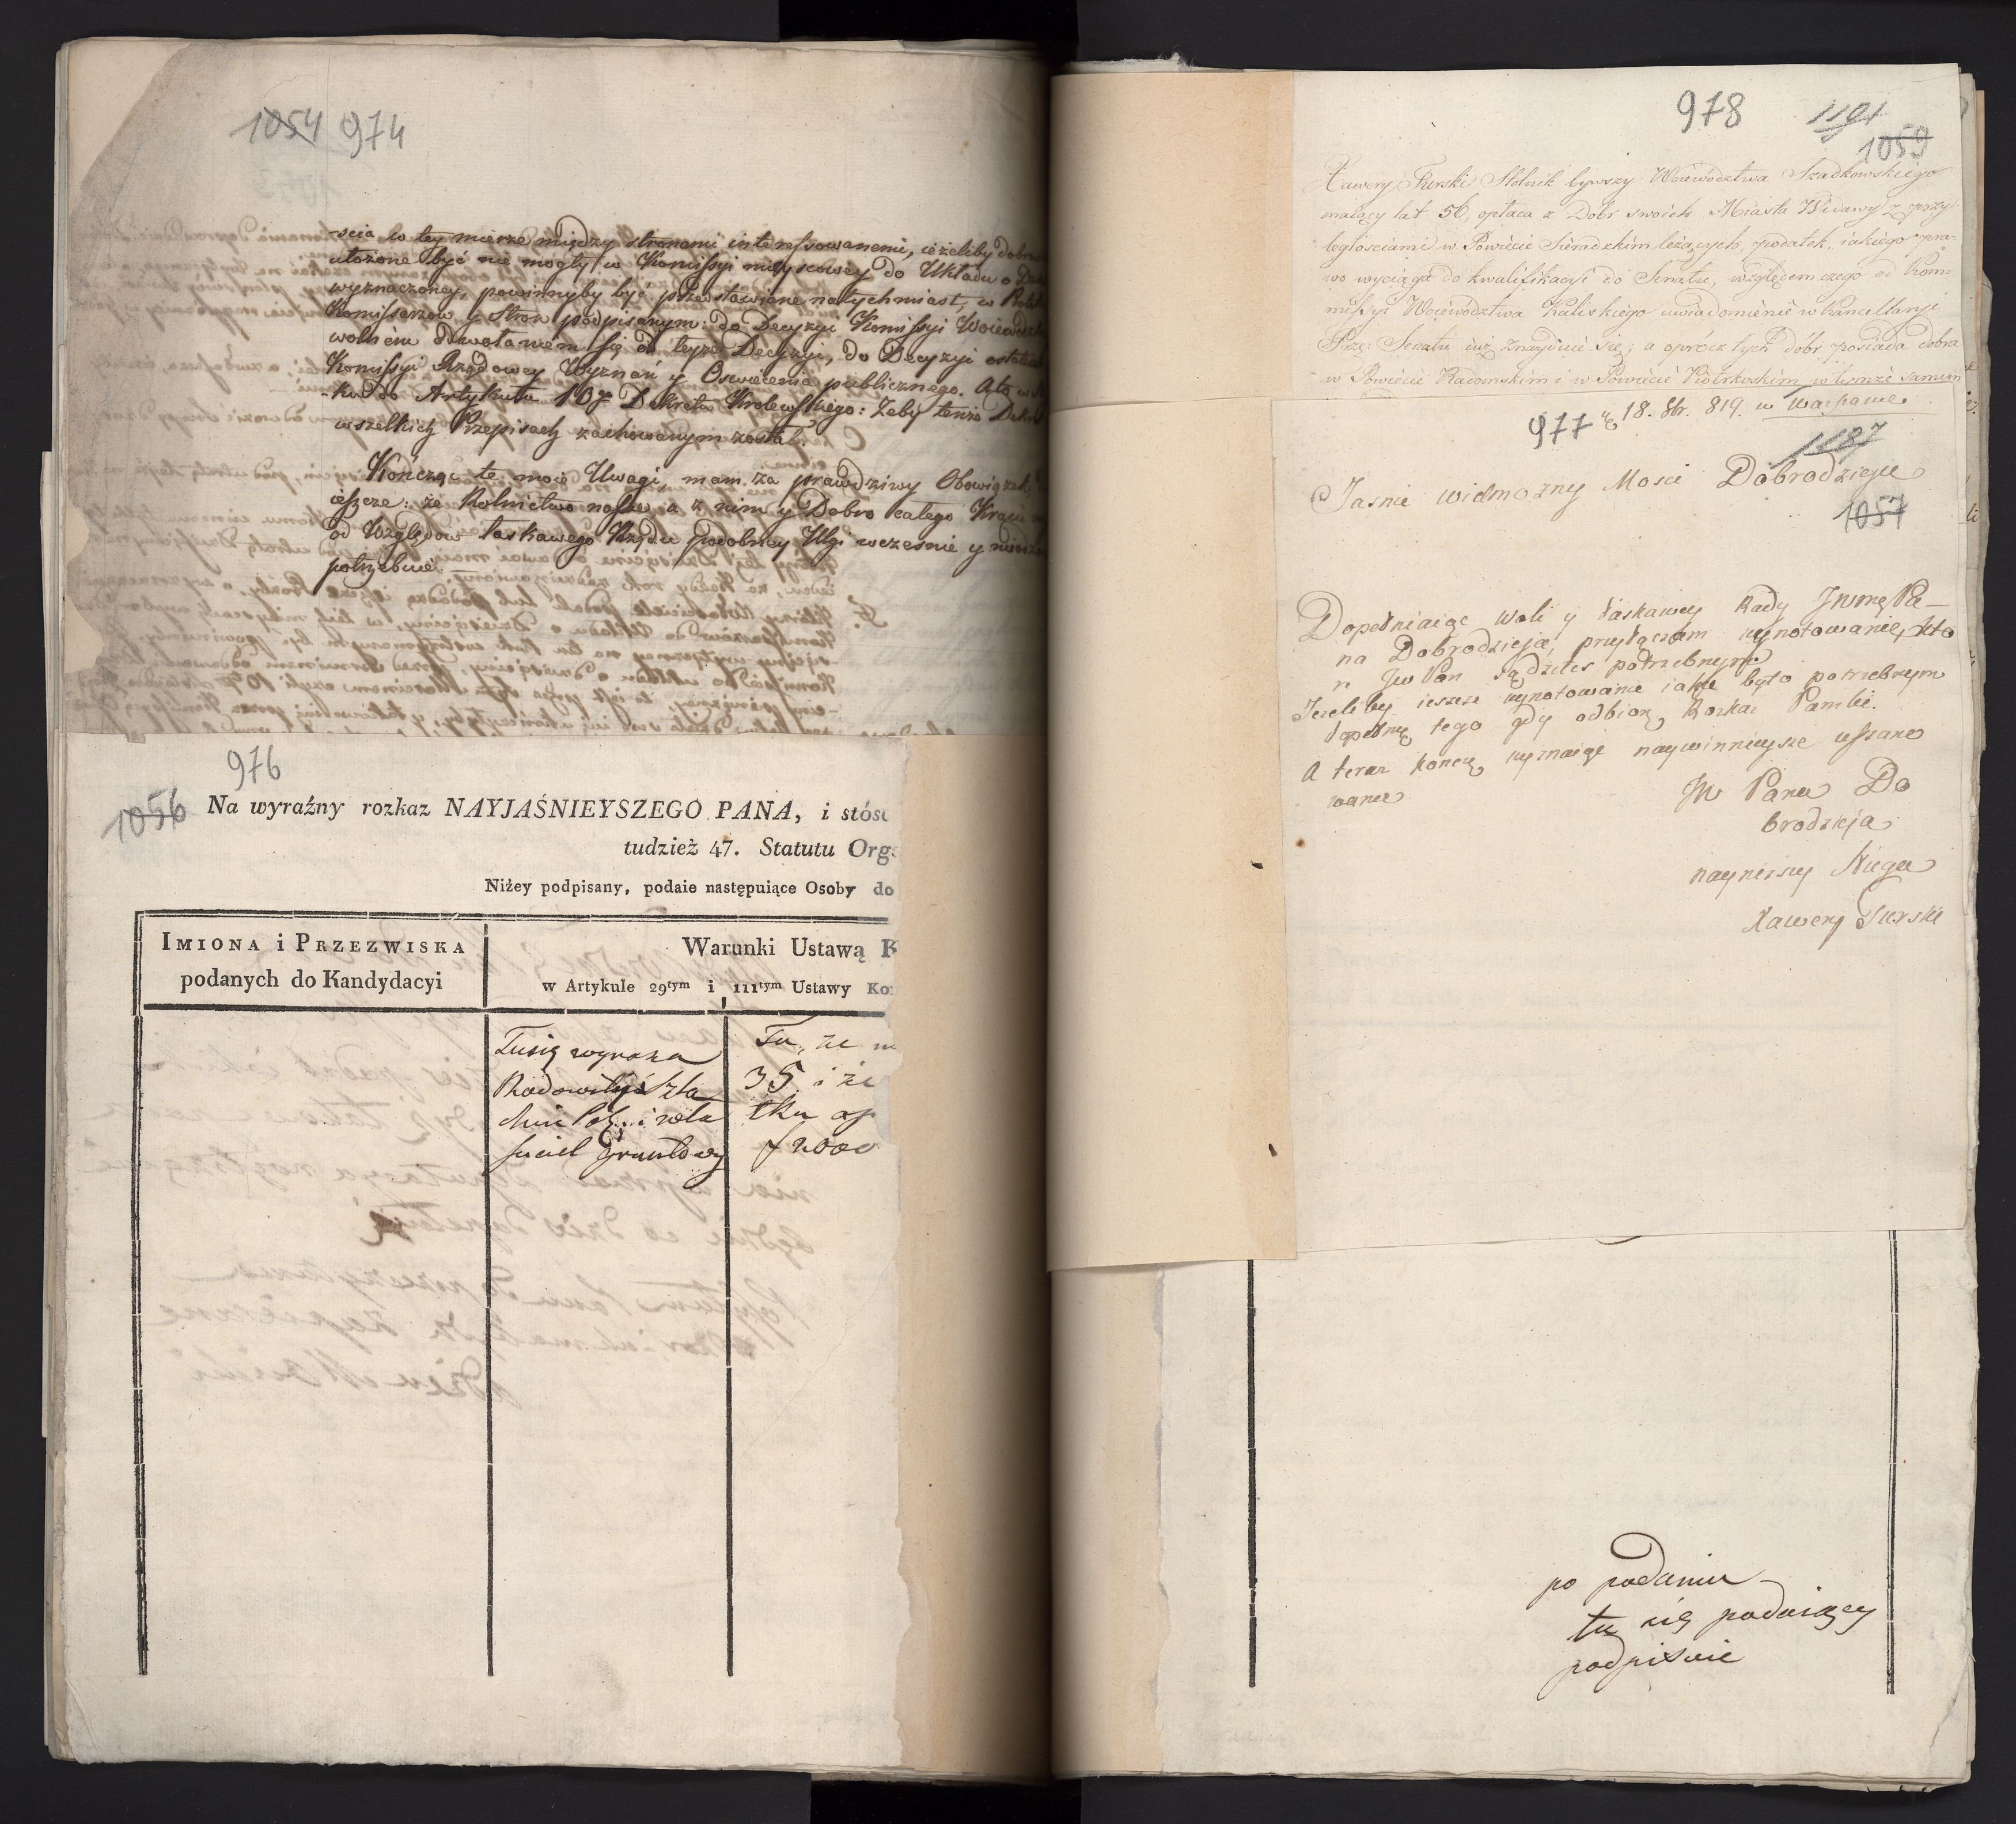 1054 974
-scia w tey mierze między stronami interessowanemi, ieżeliby dobro
ułożone być nie mogły w Komissyi mieyscowey do Układu o
wyznaczoney, powinnyby być przedstawione natychmiast, w
Komissarzow y Stron podpisanym: do Decyzyi Komissyi Woiewodz
wolnem odwołaniem się od teyże Decyzyi, do Decyzyi ostate
Komissyi Rządowey Wyznań y Oswiecenia publicznego. Ato w
-ku do Artykułu 10go Dekretu Krolewskiego: Zeby tenże Dekre
wszelkich Przepisach zachowanym został.
Kończąc te moie Uwagi, mam za prawdziwy Obowiązek
ieszcze: że Rolnictwo nasze a z nim y Dobro całego Kraiu
od Względow łaskawego Rządu podobney Ulgi wczesnie y
potrzebuie.
976
1056
Na wyraźny rozkaz NAYJAŚNIEYSZEGO PANA, i stós
tudzież 47. Statutu Orga
Niżey podpisany, podaie następuiące Osoby do
IMIONA i PRZEZWISKA
podanych do Kandydacyi
Warunki Ustawą K
w Artykule 29tym i 111tym Ustawy Ko
Tu się wyraża
Rodowitość Szla
chcic Pol: i wła
sciciel gruntowy
Tu, że m
35. i że
tku op
f 2000
978 1191
1059
Xawery Turski Stolnik bywszy Woiewództwa Szadkowskiego
maiący lat 56, opłaca z Dobr swoich Miasta Widawy z przy-
ległościami w Powiecie Sieradzkim leżących, podatek, iakiego pra-
wo wyciąga do kwalifikacyi do Senatu, względem czego od Kom-
missyi Woiewództwa Kaliskiego uwiadomienie w Kancellaryi
Prze: Senatu iuż znayduie się; a oprocz tych dóbr posiada dobra
w Powiecie Radomskim i w Powiecie Piotrkowskim w temże samem
977 18. 8br. 819. w Warszawie
1187
Jasnie wielmozny Mosci Dobrodzieju
1057
Dopełniaiąc woli y łaskawey Rady JWnę Pa-
na Dobrodzieja, przyłączam wynotowanie, kto
re JW Pan sądziłes potrzebnym
Jezeliby ieszcze wynotowanie iakie było potrzebnym
dopełnię tego gdy odbiorę Rozkaz Pański.
A teraz kończę wyznaiąc naywinnieysze uszano
wanie
JW Pana Do
brodzieja
nayniższy sługa
Xawery Turski
po podaniu
tu się podaiący
podpisuie